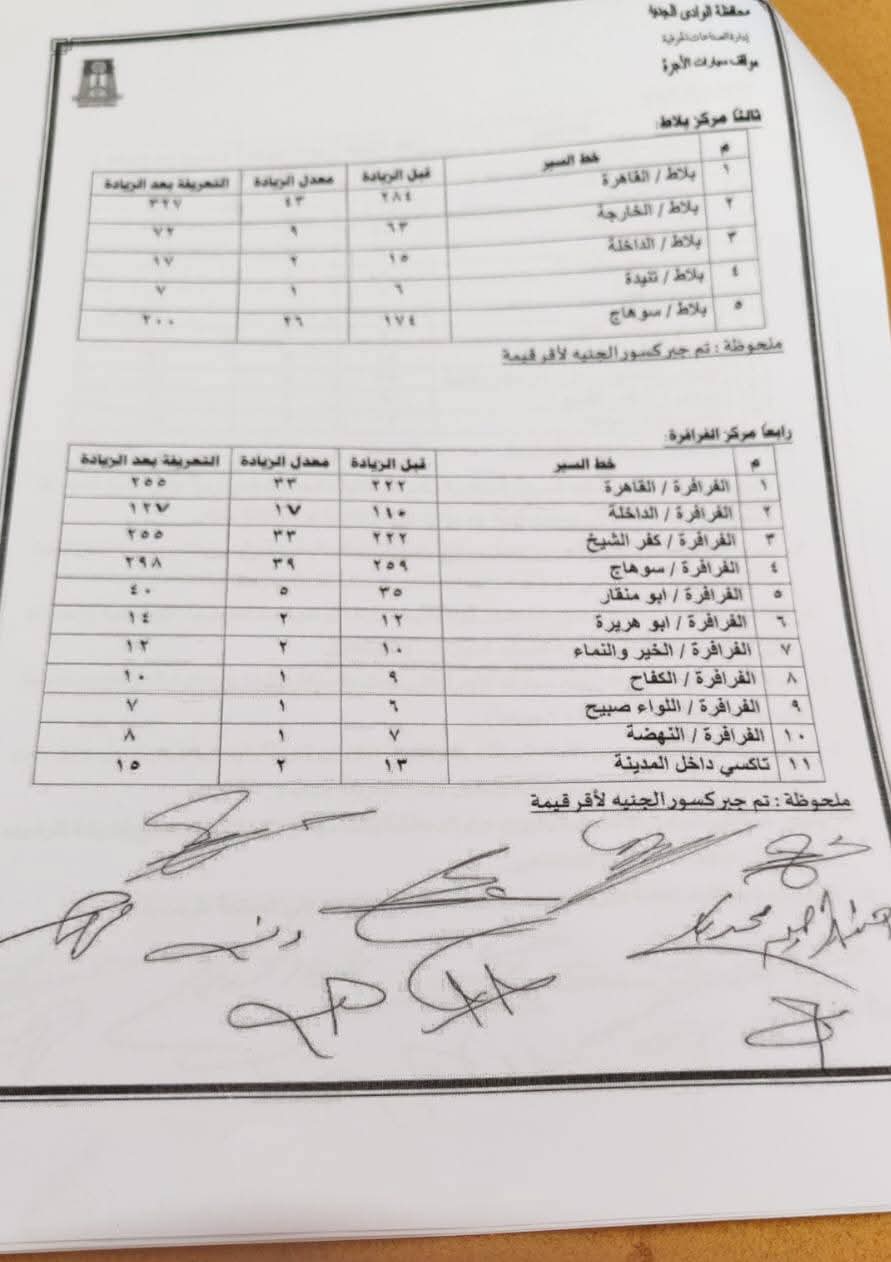 محافظة الوادى الجديد
موقف سيارات الأجرة
ثالثا مركز بلاط:
م خط السير قبل الزيادة معدل الزيادة التعريفة بعد الزيادة
١ بلاط / القاهرة ٢٨٤ ٤٣ ٣٢٧
٢ بلاط / الخارجة ٦٣ ٩ ٧٢
٣ بلاط / الداخلة ١٥ ٢ ١٧
٤ بلاط / تنيدة ٦ ١ ٧
٥ بلاط / سوهاج ١٧٤ ٢٦ ٢٠٠
ملحوظة : تم جبر كسور الجنيه لأقر قيمة
رابعا مركز الفرافرة:
م خط السير قبل الزيادة معدل الزيادة التعريفة بعد الزيادة
١ الفرافرة / القاهرة ٢٢٢ ٣٣ ٢٥٥
٢ الفرافرة / الداخلة ١١٠ ١٧ ١٢٧
٣ الفرافرة / كفر الشيخ ٢٢٢ ٣٣ ٢٥٥
٤ الفرافرة / سوهاج ٢٥٩ ٣٩ ٢٩٨
٥ الفرافرة / ابو منقار ٣٥ ٥ ٤٠
٦ الفرافرة / ابو هريرة ١٢ ٢ ١٤
٧ الفرافرة / الخير والنماء ١٠ ٢ ١٢
٨ الفرافرة / الكفاح ٩ ١ ١٠
٩ الفرافرة / اللواء صبيح ٦ ١ ٧
١٠ الفرافرة / النهضة ٧ ١ ٨
١١ تاكسي داخل المدينة ١٣ ٢ ١٥
ملحوظة : تم جبر كسور الجنيه لأقر قيمة